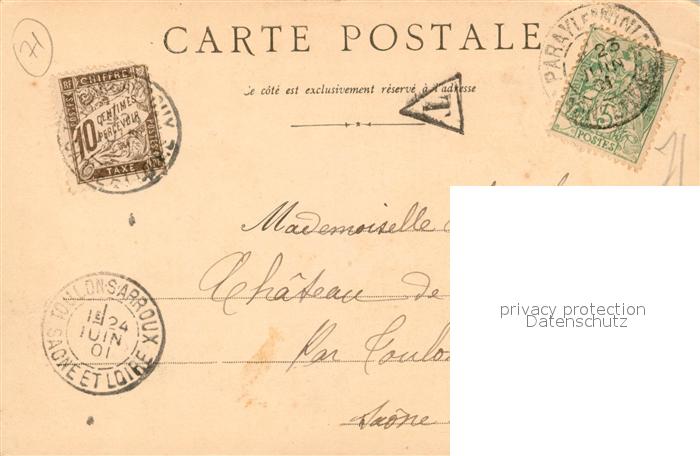 71
CARTE POSTALE
Ce côté est exclusivement réservé à l'adresse
T
CHIFFRE
POSTES
10
CENTIMES
A
PERCEVOIR
TAXE
PARAY-LE-MONIAL
25
JUIN
01
5
POSTES
71
Mademoiselle
Château de
Par Toulo
Saône
TOULON-S-ARROUX
1E 24
JUIN
01
SAONE ET LOIRE
privacy protection
Datenschutz